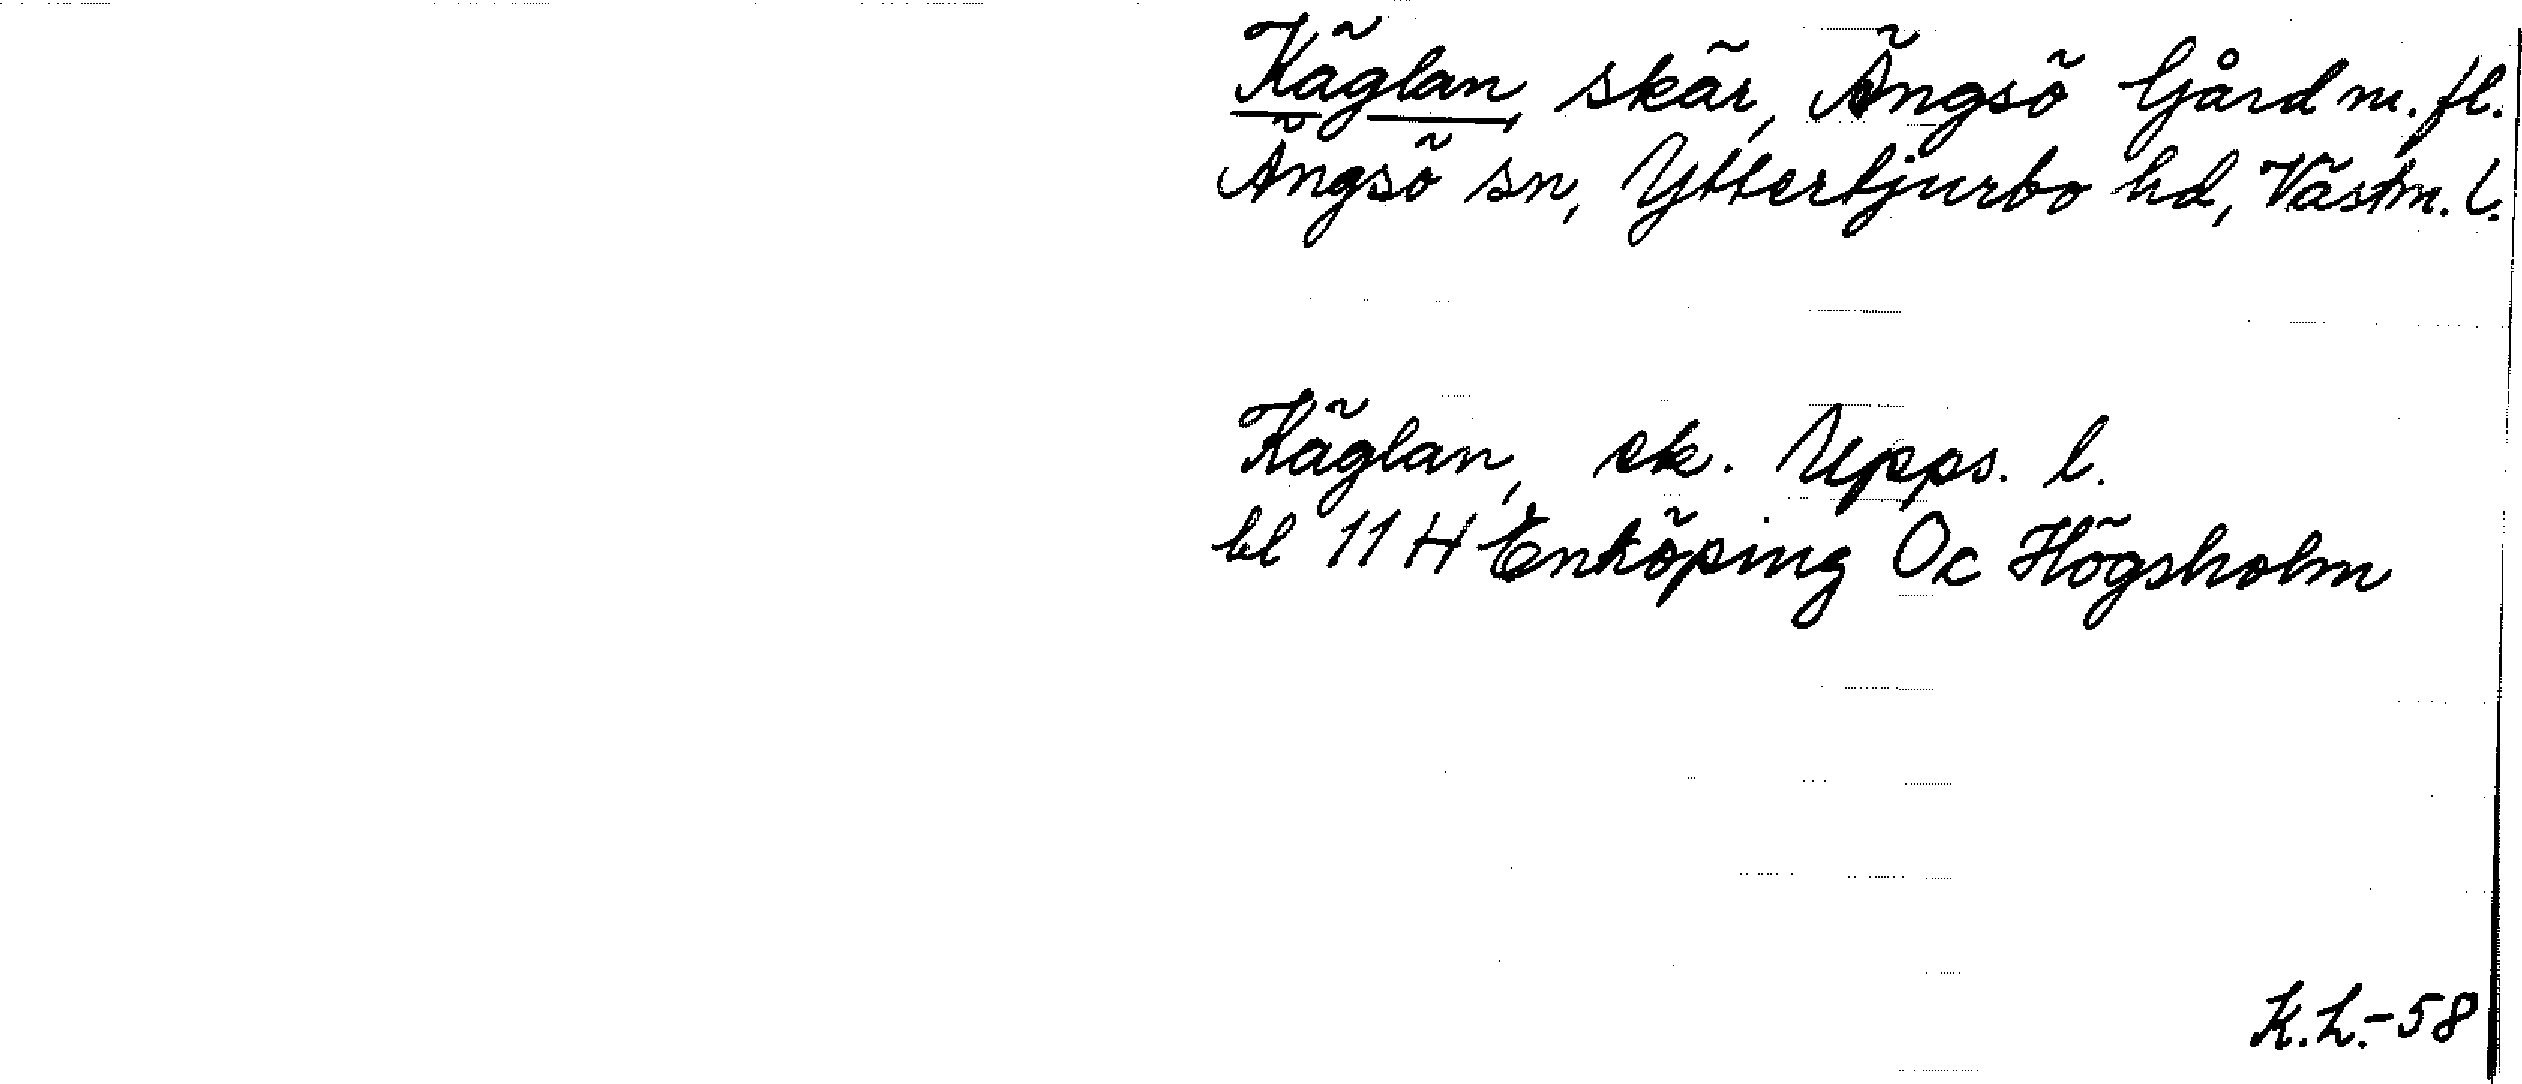 Käglan, skär, Ängsö Gård m.fl.
Ängsö sn, Yttertjurbo hd, Västm. l.
Käglan, ek. Upps. l.
bl 11 H Enköping Oc Högsholm
K.L.-58